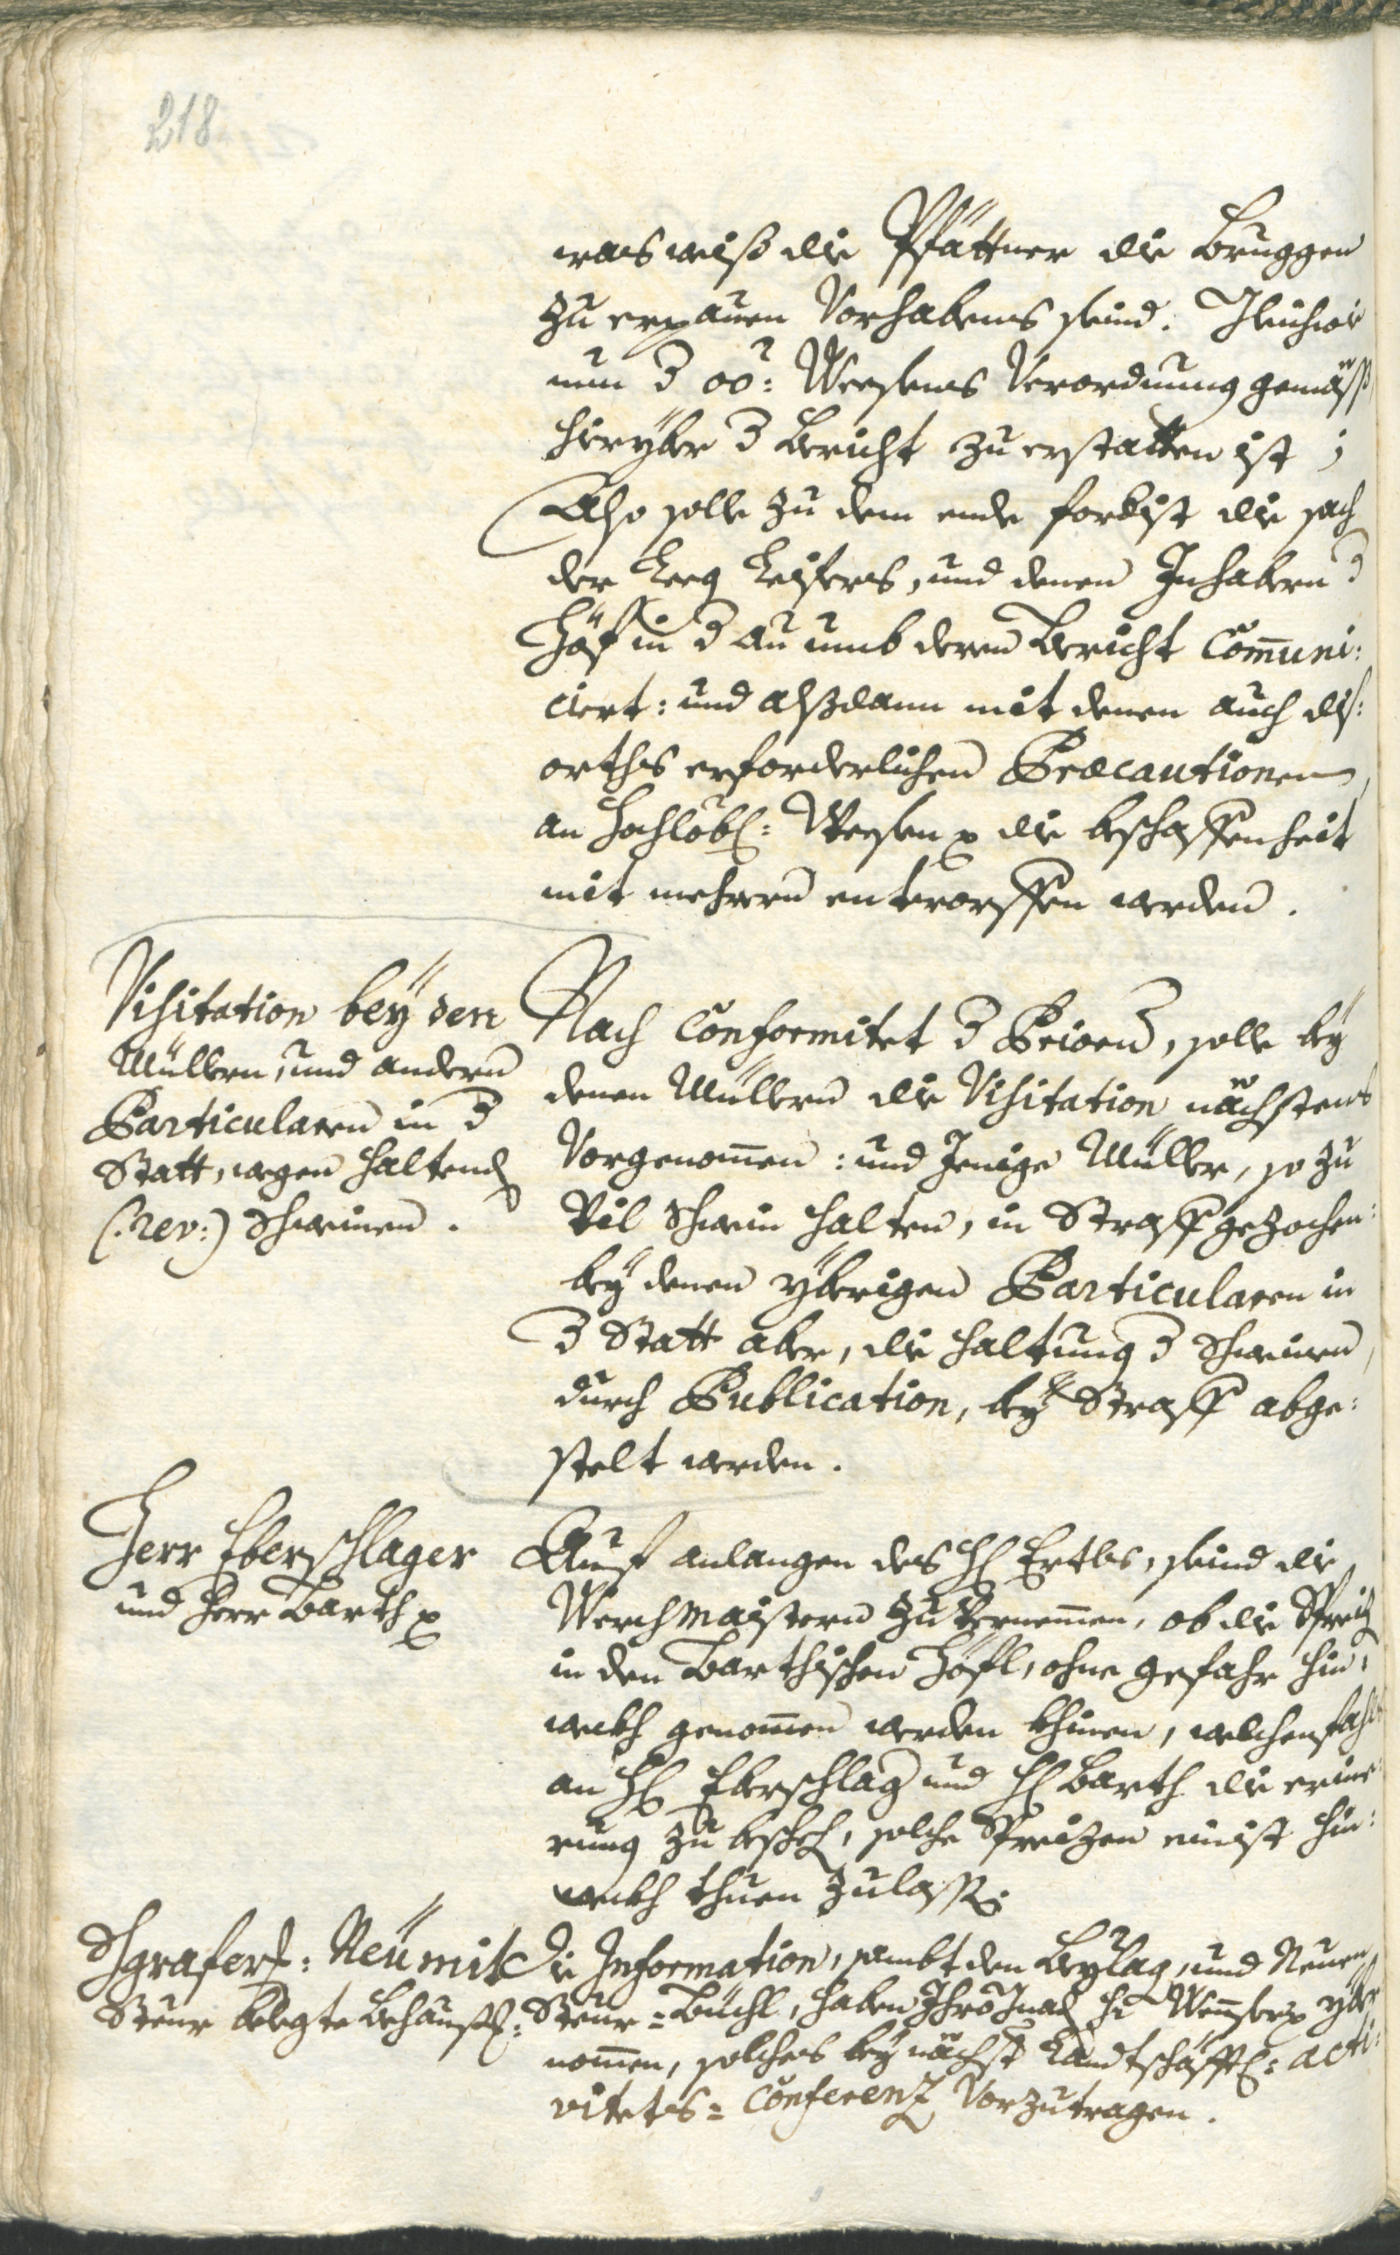 218
was weiß die Pfattner die Bruggen
zu erpauen Vorhabens seind. Gleichwie
nun d oö: Weesens Verordnung gemäß
hieryber d Bericht zu erstatten ist;
Also solle zu dem ende fordist die sach
der Leeg Leifers, und denen Inhabern d
Höf in d Au umb deren Bericht Com̃uni:
ciert: und alßdann mit denen auch diß:
orths erforderlichen Præcautionen,
an Hochlöbl: Weesen die beschaffenheit
mit mehrern entworffen werden.
Visitation bey den
Müllern, und andern
Particularn in d
Statt, wegen haltend
(:rev:) Schweinen.
Nach Conformitet d Priorn, solle bey
denen Müllern die Visitation nächstens
Vorgenom̃en: und Jenige Müller, so zu
Vil Schwein halten, in Straff gezochen:
bey denen yberigen Particularn in
d Statt aber, die haltung d Schweinen,
durch Publication, bey Straff abge:
stelt werden.
Herr Eberschlager
und Herr Barth
Auf anlangen des H Ertls, seind die
Werchmaistern zu Vernem̃en, ob die Spreiz
in den Barthischen Höfl, ohne gefahr hin:
weckh genom̃en werden khinen, welchenfahls
an H Eberschlag und H Barth die erine:
rung zu besche, solche Spreizen einist hin:
weckh thuen zulassen.
Schgrafers: Neu mit
Steur belegte Behaus:
Die Information, sambt den Beylag, und Neuen
Steur=Büchl, haben Ihro Gnad H yber
nom̃en, solches bey nächst Landtschäfftl: acti:
vitets=Conferenz Vorzutragen.